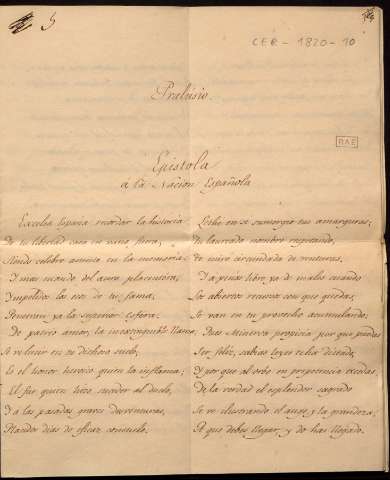 5
CER-1820-10
Prelusio.
RAE
Epistola
á la Nacion Española
Excelsa España recordar la historia
De tu libertad cara en vano fuera,
siendo celebre asunto en la memoria:
Y mas cuando del aura placentera,
Impelidas las voces de tu fama,
Penetran ya la superior esfera.
De patrio amor, la inextinguible llama
Se reluce en tu dichoso suelo,
Es el honor heroico quien la inflama:
El fin quien hizo suceder al duelo,
Y á las pasadas graves desventuras,
Plácidos dias de eficaz consuelo.
Lethe en sí sumergio tus amarguras;
Tu laureado nombre respetando,
Se mira circundado de venturas,
Y apenas libre ya de males cuando
Los abiertos recursos con que quedas,
Se van en tu provecho acumulando:
Pues Minerva propicia por que puedas
Ser feliz, sabias leyes te ha dictado,
Y por que al orbe en preeminencia excedas,
De la verdad el esplendor sagrado
Se ve ilustrando el auge, y la grandeza,
A que debes llegar, y do has llegado.